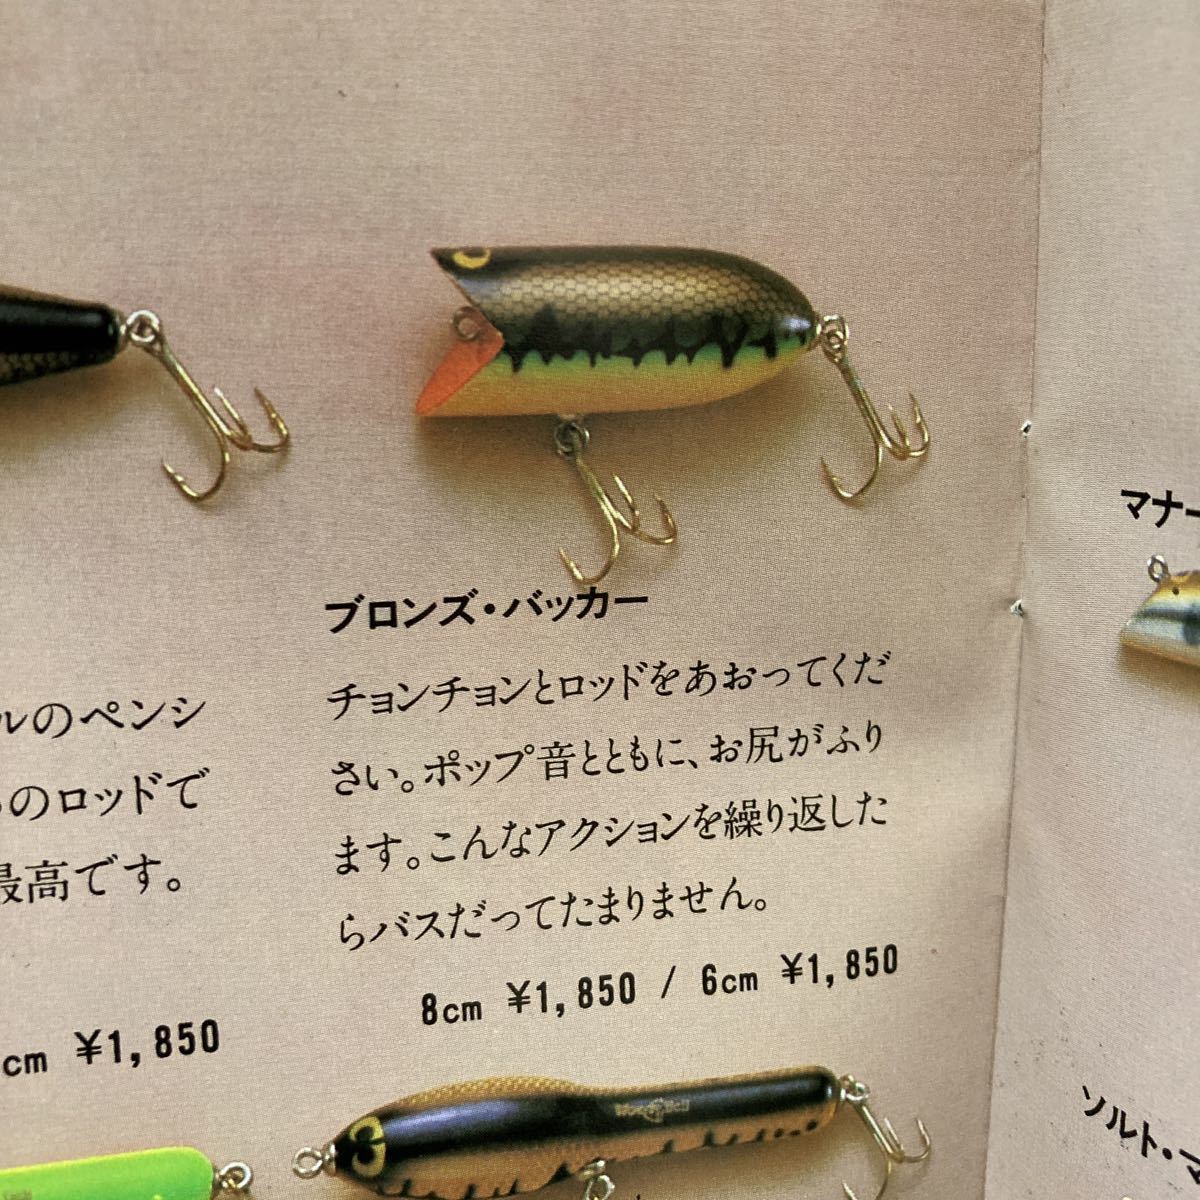 ブロンズ・バッカー
チョンチョンとロッドをあおってくだ
さい。ポップ音とともに、お尻がふり
ます。こんなアクションを繰り返した
らバスだってたまりません。
8cm ¥1,850 / 6cm ¥1,850
ルのペンシ
のロッドで
最高です。
cm ¥1,850
マナー
ソルト・マ